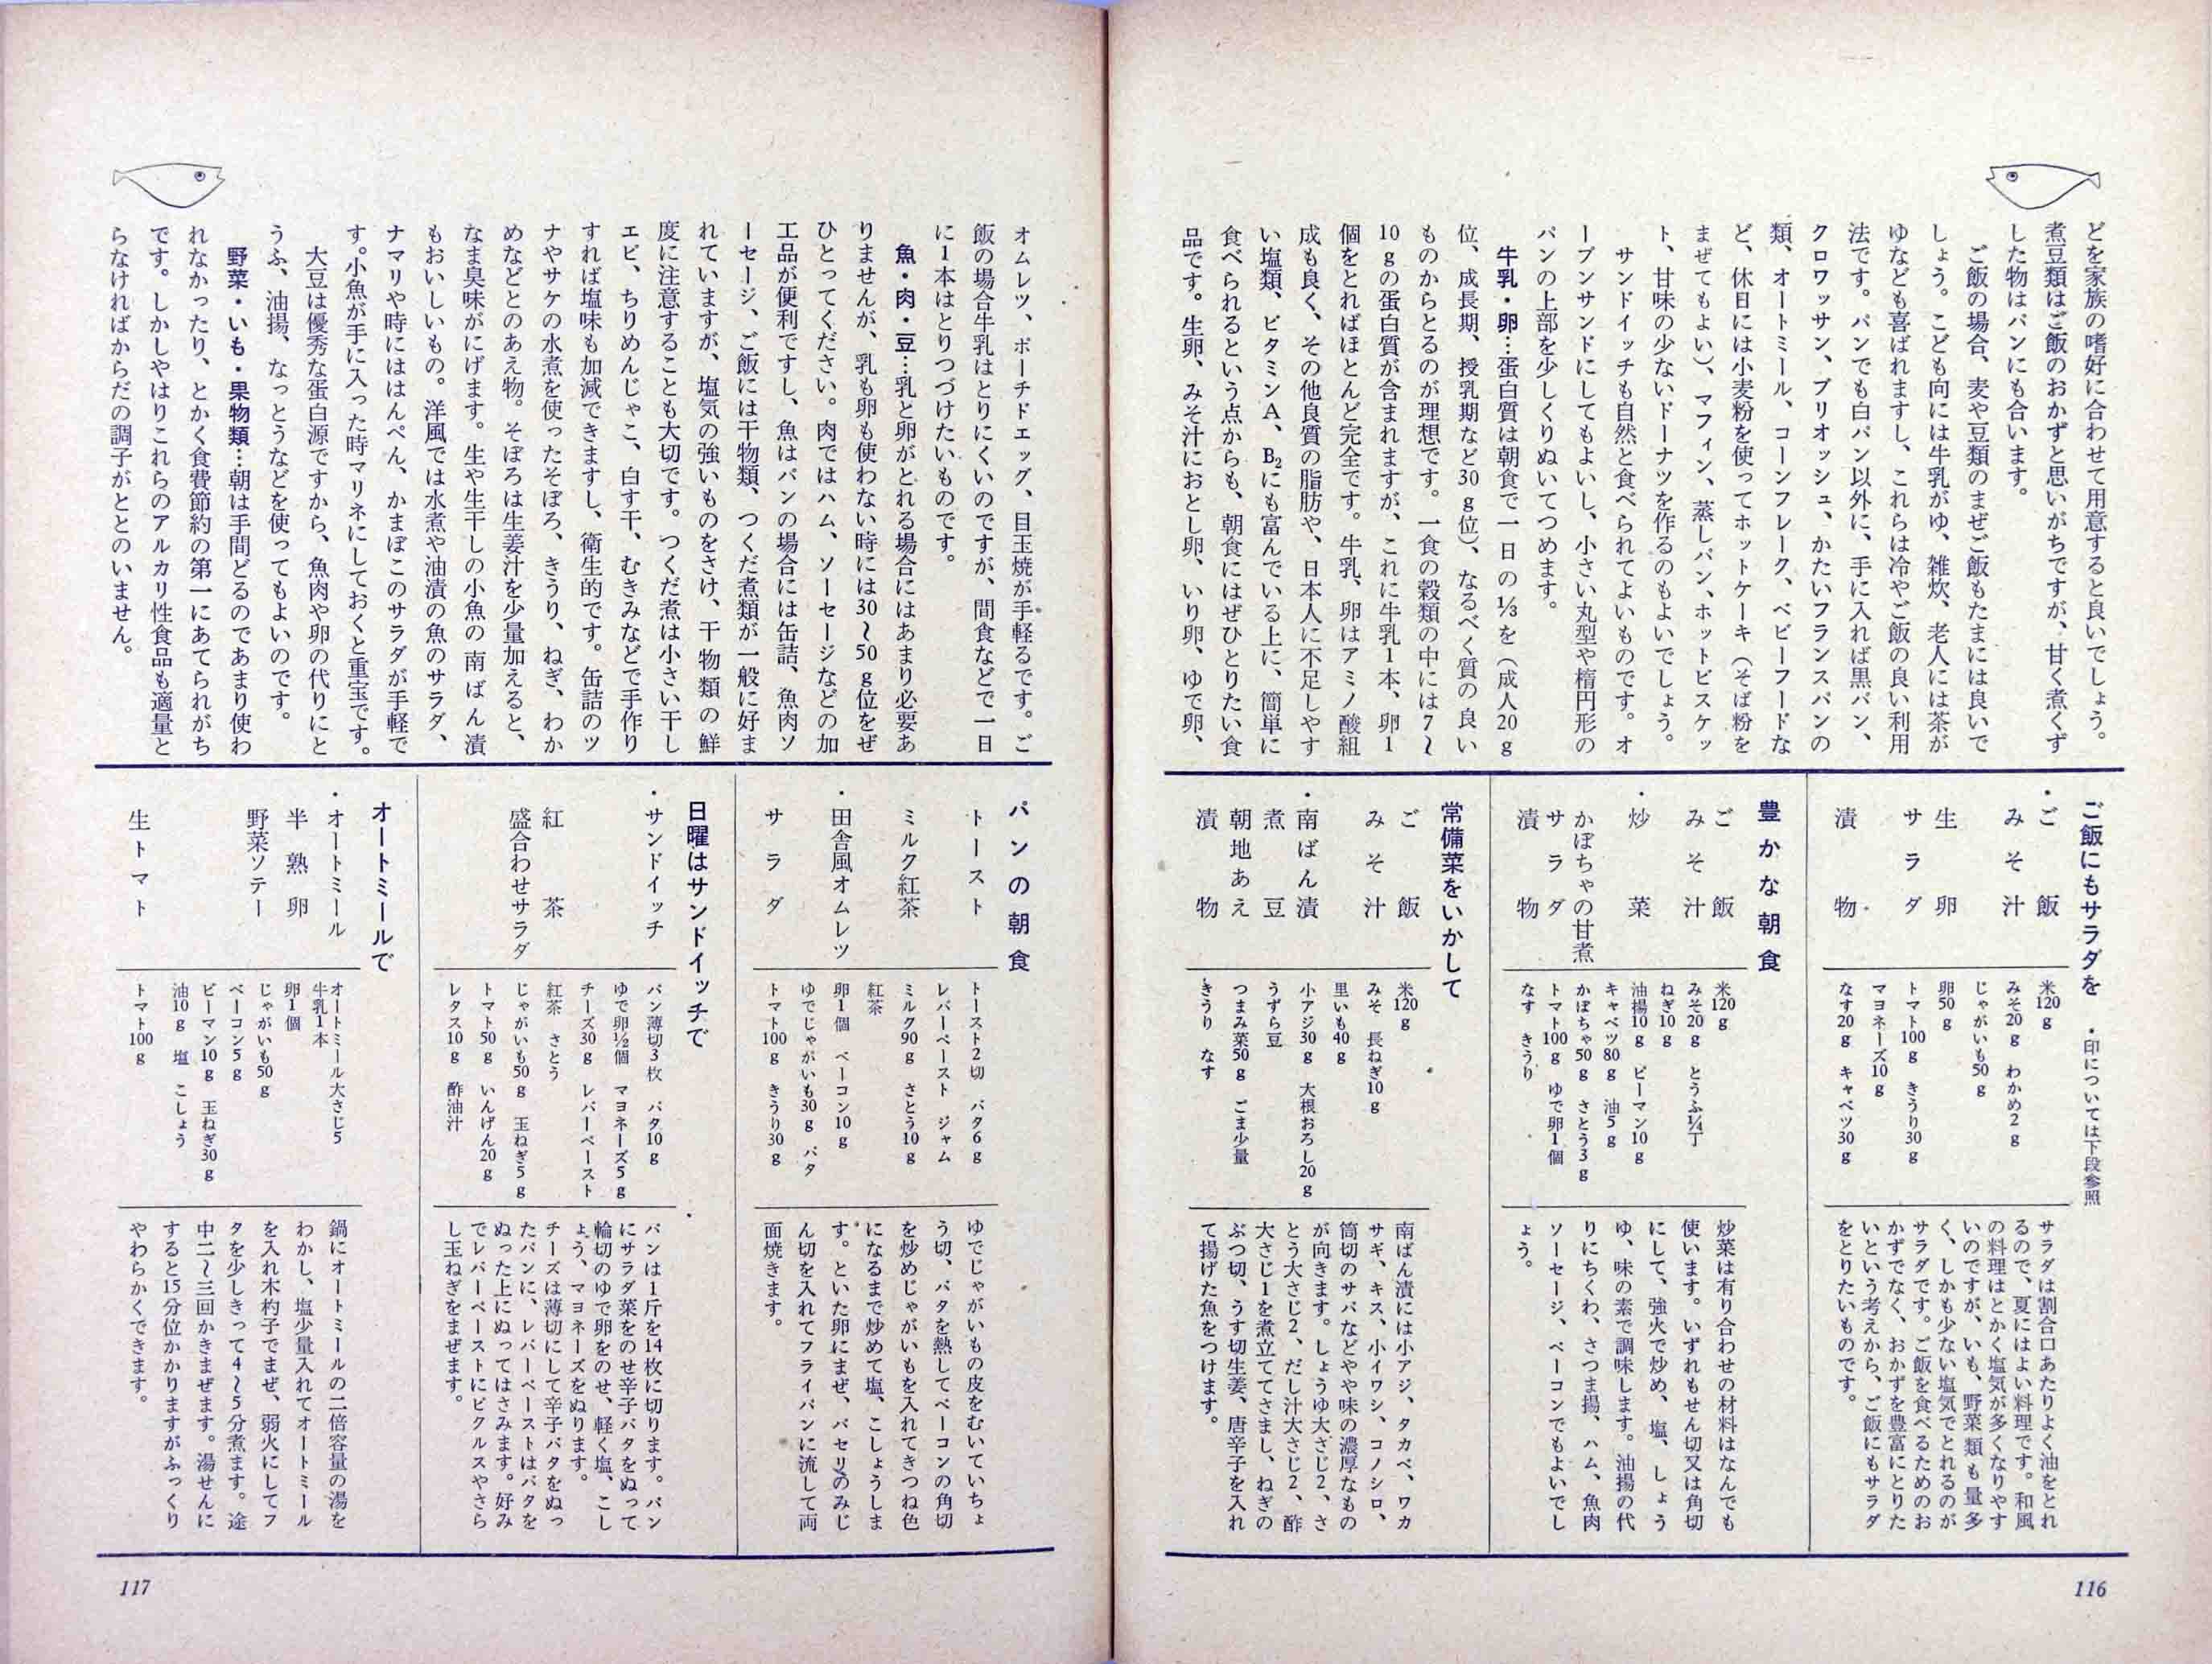 どを家族の嗜好に合わせて用意すると良いでしょう。
煮豆類はご飯のおかずと思いがちですが、甘く煮くず
した物はパンにも合います。
ご飯の場合、麦や豆類のまぜご飯もたまには良いで
しょう。こども向には牛乳がゆ、雑炊、老人には茶が
ゆなども喜ばれますし、これらは冷やご飯の良い利用
法です。パンでも白パン以外に、手に入れば黒パン、
クロワッサン、ブリオッシュ、かたいフランスパンの
類、オートミール、コーンフレーク、ベビーフードな
ど、休日には小麦粉を使ってホットケーキ（そば粉を
まぜてもよい）、マフィン、蒸しパン、ホットビスケッ
ト、甘味の少ないドーナツを作るのもよいでしょう。
サンドイッチも自然と食べられてよいものです。オ
ープンサンドにしてもよいし、小さい丸型や楕円形の
パンの上部を少しくりぬいてつめます。
牛乳・卵…蛋白質は朝食で一日の⅓を（成人20g
位、成長期、授乳期など30g位）、なるべく質の良い
ものからとるのが理想です。一食の穀類の中には7〜
10gの蛋白質が含まれますが、これに牛乳1本、卵1
個をとればほとんど完全です。牛乳、卵はアミノ酸組
成も良く、その他良質の脂肪や、日本人に不足しやす
い塩類、ビタミンA、B₂にも富んでいる上に、簡単に
食べられるという点からも、朝食にはぜひとりたい食
品です。生卵、みそ汁におとし卵、いり卵、ゆで卵、
ご飯にもサラダを ・印については下段参照
・ご飯
みそ汁
生卵
サラダ
漬物
米120g
みそ20g わかめ2g
じゃがいも50g
卵50g
トマト100g きうり30g
マヨネーズ10g
なす20g キャベツ30g
サラダは割合口あたりよく油をとれ
るので、夏にはよい料理です。和風
の料理はとかく塩気が多くなりやす
いのですが、いも、野菜類も量多
く、しかも少ない塩気でとれるのが
サラダです。ご飯を食べるためのお
かずでなく、おかずを豊富にとりた
いという考えから、ご飯にもサラダ
をとりたいものです。
豊かな朝食
ご飯
みそ汁
・炒菜
かぼちゃの甘煮
サラダ
漬物
米120g
みそ20g とうふ¼丁
ねぎ10g
油揚10g ピーマン10g
キャベツ80g 油5g
かぼちゃ50g さとう3g
トマト100g ゆで卵1個
なす きうり
炒菜は有り合わせの材料はなんでも
使います。いずれもせん切又は角切
にして、強火で炒め、塩、しょう
ゆ、味の素で調味します。油揚の代
りにちくわ、さつま揚、ハム、魚肉
ソーセージ、ベーコンでもよいでし
ょう。
常備菜をいかして
ご飯
みそ汁
・南ばん漬
煮豆
朝地あえ
漬物
米120g
みそ 長ねぎ10g
里いも40g
小アジ30g 大根おろし20g
うずら豆
つまみ菜50g ごま少量
きうり なす
南ばん漬には小アジ、タカベ、ワカ
サギ、キス、小イワシ、コノシロ、
筒切のサバなどやや味の濃厚なもの
が向きます。しょうゆ大さじ2、さ
とう大さじ2、だし汁大さじ2、酢
大さじ1を煮立ててさまし、ねぎの
ぶつ切、うす切生姜、唐辛子を入れ
て揚げた魚をつけます。
116
オムレツ、ポーチドエッグ、目玉焼が手軽るです。ご
飯の場合牛乳はとりにくいのですが、間食などで一日
に1本はとりつづけたいものです。
魚・肉・豆…乳と卵がとれる場合にはあまり必要あ
りませんが、乳も卵も使わない時には30〜50g位をぜ
ひとってください。肉ではハム、ソーセージなどの加
工品が便利ですし、魚はパンの場合には缶詰、魚肉ソ
ーセージ、ご飯には干物類、つくだ煮類が一般に好ま
れていますが、塩気の強いものをさけ、干物類の鮮
度に注意することも大切です。つくだ煮は小さい干し
エビ、ちりめんじゃこ、白す干、むきみなどで手作り
すれば塩味も加減できますし、衛生的です。缶詰のツ
ナやサケの水煮を使ったそぼろ、きうり、ねぎ、わか
めなどとのあえ物。そぼろは生姜汁を少量加えると、
なま臭味がにげます。生や生干しの小魚の南ばん漬
もおいしいもの。洋風では水煮や油漬の魚のサラダ、
ナマリや時にははんぺん、かまぼこのサラダが手軽で
す。小魚が手に入った時マリネにしておくと重宝です。
大豆は優秀な蛋白源ですから、魚肉や卵の代りにと
うふ、油揚、なっとうなどを使ってもよいのです。
野菜・いも・果物類…朝は手間どるのであまり使わ
れなかったり、とかく食費節約の第一にあてられがち
です。しかしやはりこれらのアルカリ性食品も適量と
らなければからだの調子がととのいません。
パンの朝食
トースト
ミルク紅茶
・田舎風オムレツ
サラダ
トースト2切 バタ6g
レバーペースト ジャム
ミルク90g さとう10g
紅茶
卵1個 ベーコン10g
ゆでじゃがいも30g バタ
トマト100g きうり30g
ゆでじゃがいもの皮をむいていちょ
う切、バタを熱してベーコンの角切
を炒めじゃがいもを入れてきつね色
になるまで炒めて塩、こしょうしま
す。といた卵にまぜ、パセリのみじ
ん切を入れてフライパンに流して両
面焼きます。
日曜はサンドイッチで
・サンドイッチ
紅茶
盛合わせサラダ
パン薄切3枚 バタ10g
ゆで卵½個 マヨネーズ5g
チーズ30g レバーペースト
紅茶 さとう
じゃがいも50g 玉ねぎ5g
トマト50g いんげん20g
レタス10g 酢油汁
パンは1斤を14枚に切ります。パン
にサラダ菜をのせ辛子バタをぬって
輪切のゆで卵をのせ、軽く塩、こし
ょう、マヨネーズをぬります。
チーズは薄切にして辛子バタをぬっ
たパンに、レバーペーストはバタを
ぬった上にぬってはさみます。好み
でレバーペーストにピクルスやさら
し玉ねぎをまぜます。
オートミールで
・オートミール
半熟卵
野菜ソテー
生トマト
オートミール大さじ5
牛乳1本
卵1個
じゃがいも50g
ベーコン5g
ピーマン10g 玉ねぎ30g
油10g 塩 こしょう
トマト100g
鍋にオートミールの二倍容量の湯を
わかし、塩少量入れてオートミール
を入れ木杓子でまぜ、弱火にしてフ
タを少しきって4〜5分煮ます。途
中二〜三回かきまぜます。湯せんに
すると15分位かかりますがふっくり
やわらかくできます。
117